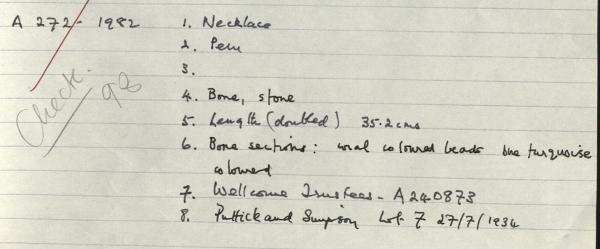 A 272 - 1982 1. Necklace
2. Peru
3.
4. Bone, stone
5. Length (doubled) 35.2 cms
6. Bone sections: coral coloured beads one turquoise
coloured
7. Wellcome Trustees - A240873
8. Puttick and Simpson Lot 7 27/7/1934
Check.
98